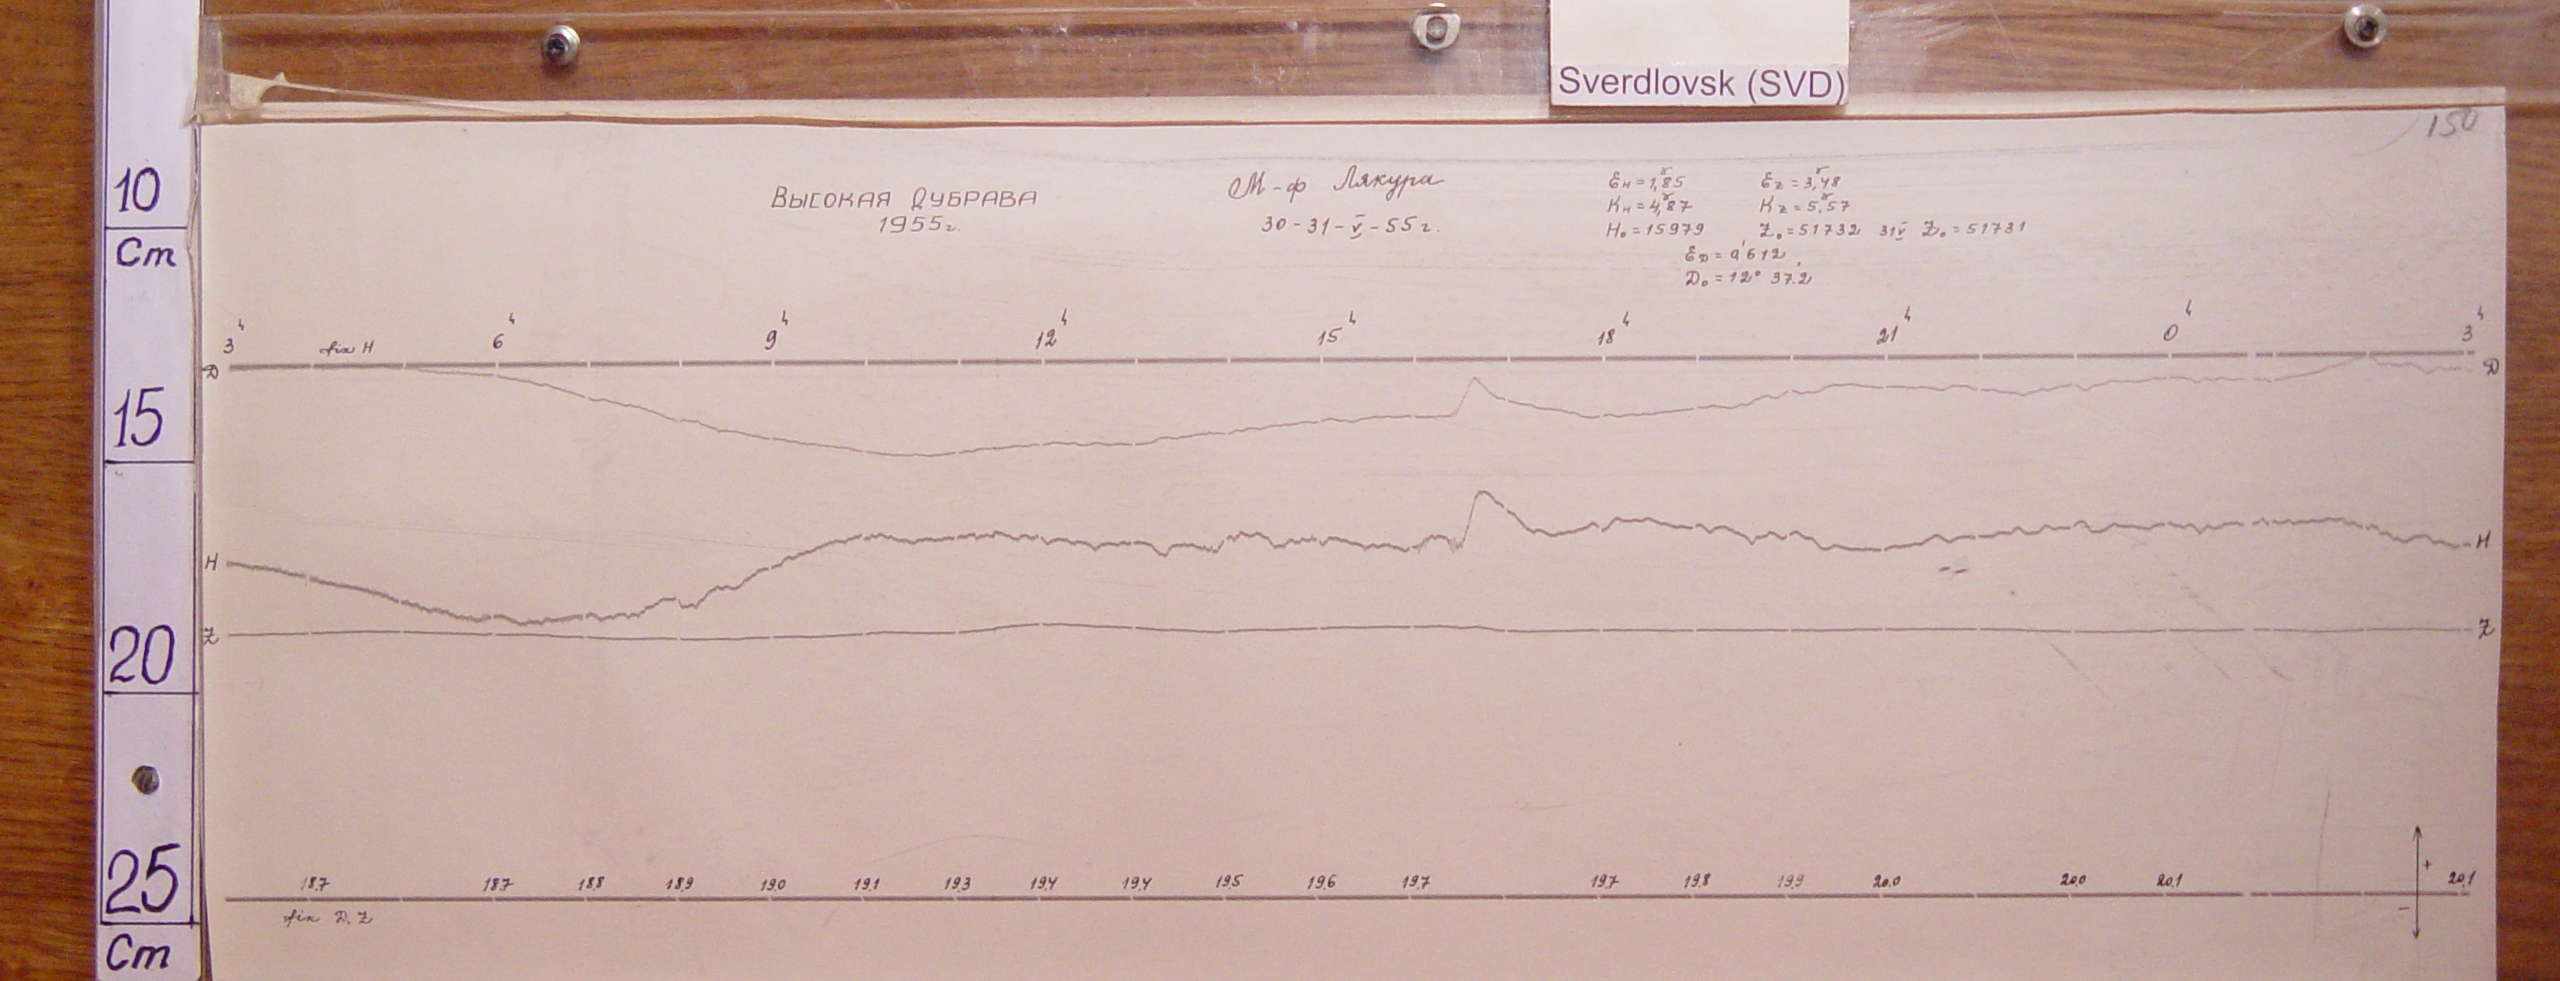 Sverdlovsk (SVD)
150
10
Cm
15
20
25
Cm
ВЫСОКАЯ ДУБРАВА
1955г.
М-ф Лякура
30-31-V-55г.
Eн=1,85γ Ez=3,48γ
Kн=4,87γ Kz=5,57γ
H₀=15979 Z₀=51732 31V Z₀=51731
E_D=0'612
D₀=12° 37.2'
3ч 6ч 9ч 12ч 15ч 18ч 21ч 0ч 3ч
fix H
D D
H H
Z Z
18.7 18.7 18.8 18.9 19.0 19.1 19.3 19.4 19.4 19.5 19.6 19.7 19.7 19.8 19.9 20.0 20.0 20.1 20.1
fix D.Z
+
−